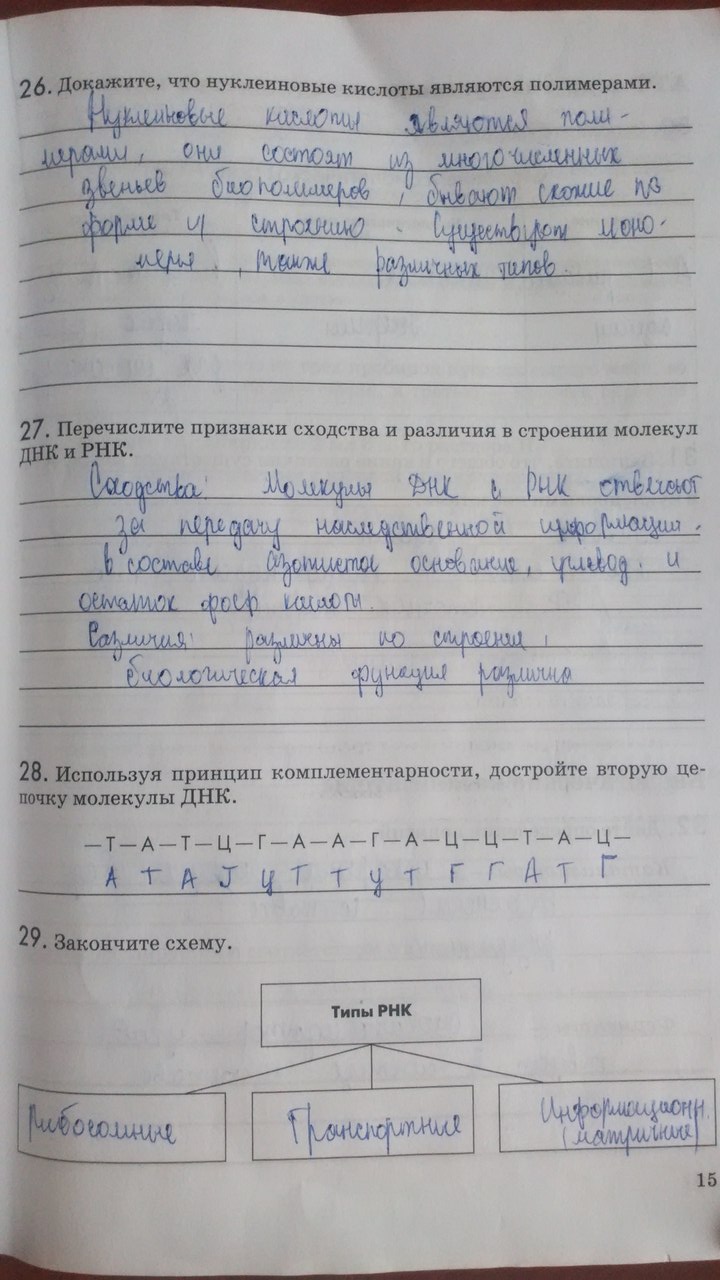 26. Докажите, что нуклеиновые кислоты являются полимерами.
Нуклеиновые кислоты являются поли-
мерами, они состоят из многочисленных
звеньев биополимеров, бывают схожие по
форме и строению. Существуют моно-
меры, также различных типов.
27. Перечислите признаки сходства и различия в строении молекул
ДНК и РНК.
Сходства: Молекулы ДНК и РНК отвечают
за передачу наследственной информации.
в составе азотистое основание, углевод и
остаток фосф кислоты.
Различия: различны по строению,
биологическая функция различна
28. Используя принцип комплементарности, достройте вторую це-
почку молекулы ДНК.
—Т—А—Т—Ц—Г—А—А—Г—А—Ц—Ц—Т—А—Ц—
А Т А Г Ц Т Т Ц Т Г Г А Т Г
29. Закончите схему.
Типы РНК
Рибосомные Транспортные Информационн.
(матричные)
15